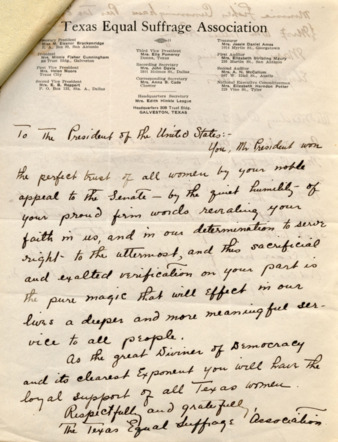 Texas Equal Suffrage Association
Honorary President
Mrs. M. Eleanor Brackenridge
President
Mrs. Minnie Fisher Cunningham
First Vice President
Texas City
Third Vice President
Dallas, Texas
Recording Secretary
Corresponding Secretary
Headquarters Secretary
Mrs. Edith Hinkle League
Headquarters
GALVESTON, TEXAS
Treasurer
Mrs. Jessie Daniel Ames
First Auditor
Mrs. Elizabeth Stirling Maury
Second Auditor
Mrs. A. N. McCallum
Mrs. Elizabeth Herndon Potter
To The President of the United States:-
You, Mr. President won
the perfect trust of all women by your noble
appeal to the Senate - by the quiet humility of
your proud firm words revealing your
faith in us, and in our determination to serve
right to the uttermost, and this sacrificial
and exalted verification on your part is
the pure magic that will effect in our
lives a deeper and more meaningful ser-
vice to all people.
As the great Diviner of Democracy
and its clearest Exponent you will have the
loyal support of all Texas women.
Respectfully and gratefully,
The Texas Equal Suffrage Association